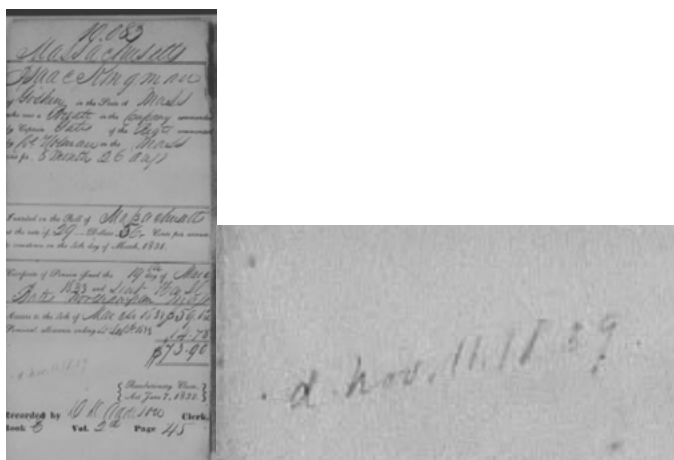 10.083
Massachusetts
Isaac Kingman
of Goshen in the State of Mass
who was a Private in the Company commanded
by Captain Bates of the Regt commanded
by Col Holman in the Mass
line for 8 month 26 days
Inscribed on the Roll of Massachusetts
at the rate of 29 Dollars 56 Cents per annum,
to commence on the 4th day of March, 1831.
Certificate of Pension issued the 19th day of
1833 and sent
Bates Northampton
Arrears to the 4th of $59.12
Semi-anl. allowance ending 4 Sept 1833 14.78
$73.90
d. nov. 11. 1839
Revolutionary Claim,
Act June 7, 1832.
Recorded by Clerk,
Book E Vol. 2 Page 45
d. nov. 11. 1839.